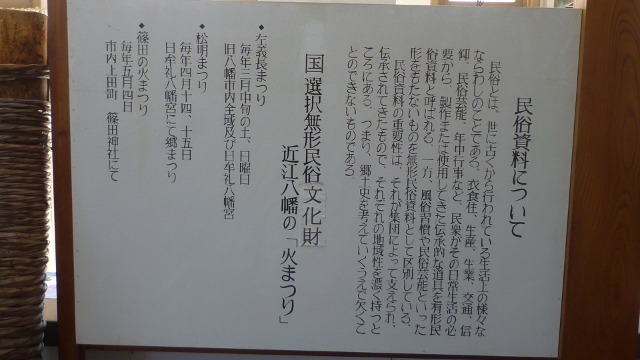 民俗資料について
民俗とは、世に古くから行われている生活上の様々な
ならわしのことである。衣食住、生産、生業、交通、信
仰、民俗芸能、年中行事など、民衆がその日常生活の必
要から、製作または使用してきた伝承的な道具を有形民
俗資料と呼ばれる。一方、風俗習慣や民俗芸能といった
形をもたないものを無形民俗資料として区別している。
民俗資料の重要性は、それが集団によって支えられ、
伝承されてきたもので、それぞれの地域性を濃く持つと
ころにある。つまり、郷土史を考えていくうえで欠くこ
とのできないものである。
国 選択無形民俗文化財
近江八幡の「火まつり」
◆左義長まつり
毎年三月中旬の土、日曜日
旧八幡市内全域及び日牟礼八幡宮
◆松明まつり
毎年四月十四、十五日
日牟礼八幡宮にて郷まつり
◆篠田の火まつり
毎年五月四日
市内上田町 篠田神社にて